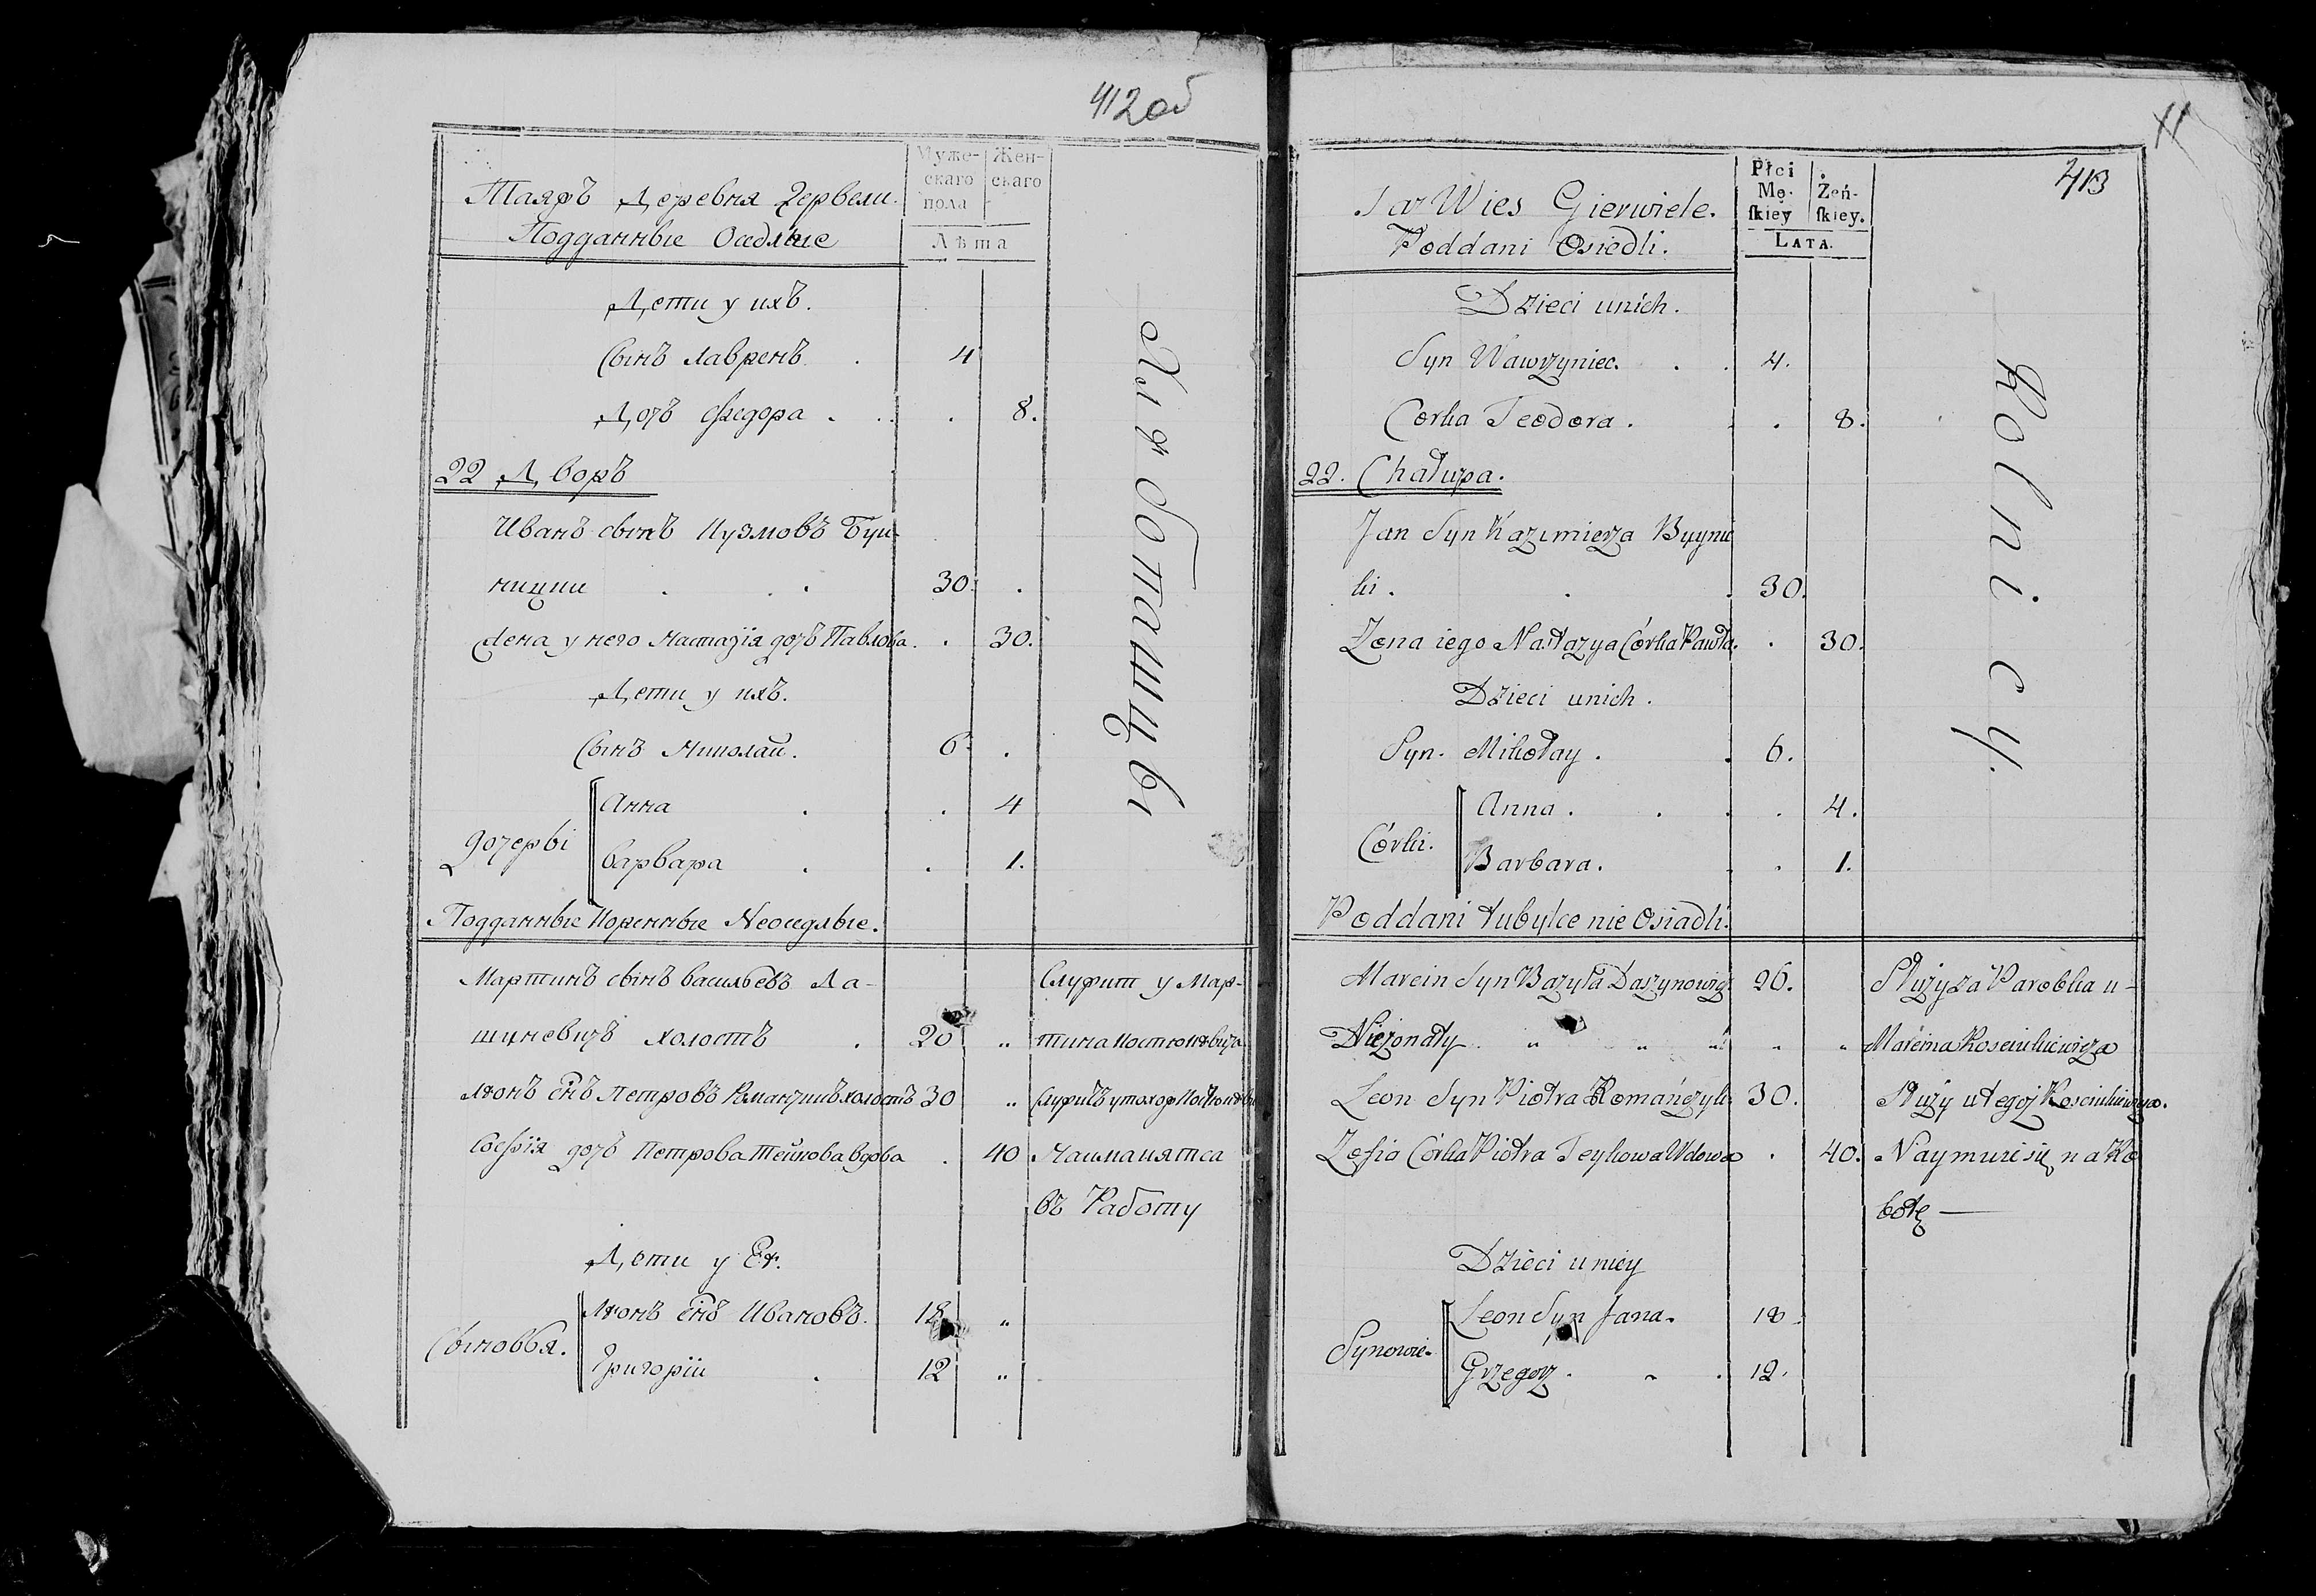 412об
Таяжъ Деревня Гервели.
Подданные Оседлые
Муже-
скаго
пола
Жен-
скаго
Лѣта
Дети у ихъ.
Сынъ Лавренъ. 4
Дочь Федора . . . 8.
22 Дворъ
Иванъ сынъ Кузмовъ Буй-
ницки . . . 30. .
Жена у него Настазія дочь Павлова. . 30.
Дети у ихъ.
Сынъ Николай. 6. .
дочеры
Анна . . 4
Варвара . . 1.
Хлеботацы
Подданные Коренные Неоседлые.
Мартинъ сынъ Васильевъ Да- Служит у Мар-
шуневичъ холостъ . 20 „ тина Костюкевича
Леонъ сnъ Петровъ Романчикъ холостъ 30 „ Служитъ у тогож
Софія дочь Петрова Тейкова вдова . 40 Наиманятса
въ Работу
Дети у Ея.
Сыновья.
Леонъ сnъ Ивановъ. 18 „
Григорій . 12 „
11
413
Taż Wies Gierwiele.
Poddani Osiedli.
Płci
Mę-
ſkiey
Żeń-
ſkiey.
LATA.
Dzieci unich.
Syn Wawrzyniec. . . 4.
Corka Teodora . . . 8.
22. Chałupa.
Jan Syn Kazimierza Buynic
ki . . . 30.
Zona iego Nastazya Córka Pawła. . 30.
Dzieci unich.
Syn. Mikołay . . 6.
Córki.
Anna . . . . 4.
Barbara. . . 1.
Rolnicy.
Poddani tubylce nie Osiadli.
Marcin Syn Bazyla Daszynowicz 26. Służy za Parobka u-
Nieżonaty „ „ „ „ „ Marcina Kosciukiewicza
Leon Syn Piotra Romańczyk 30. Służy u tegoj Kosciukiewicza.
Zofia Córka Piotra Teykowa Wdowa . 40. Naymuie się na Ro
botę —
Dzieci uniey
Synowie.
Leon Syn Jana. 18.
Grzegorz . . . 12.